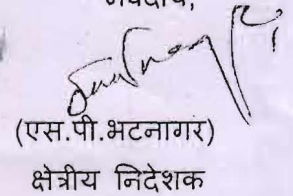 भवदीय,
(एस.पी.भटनागर)
क्षेत्रीय निदेशक